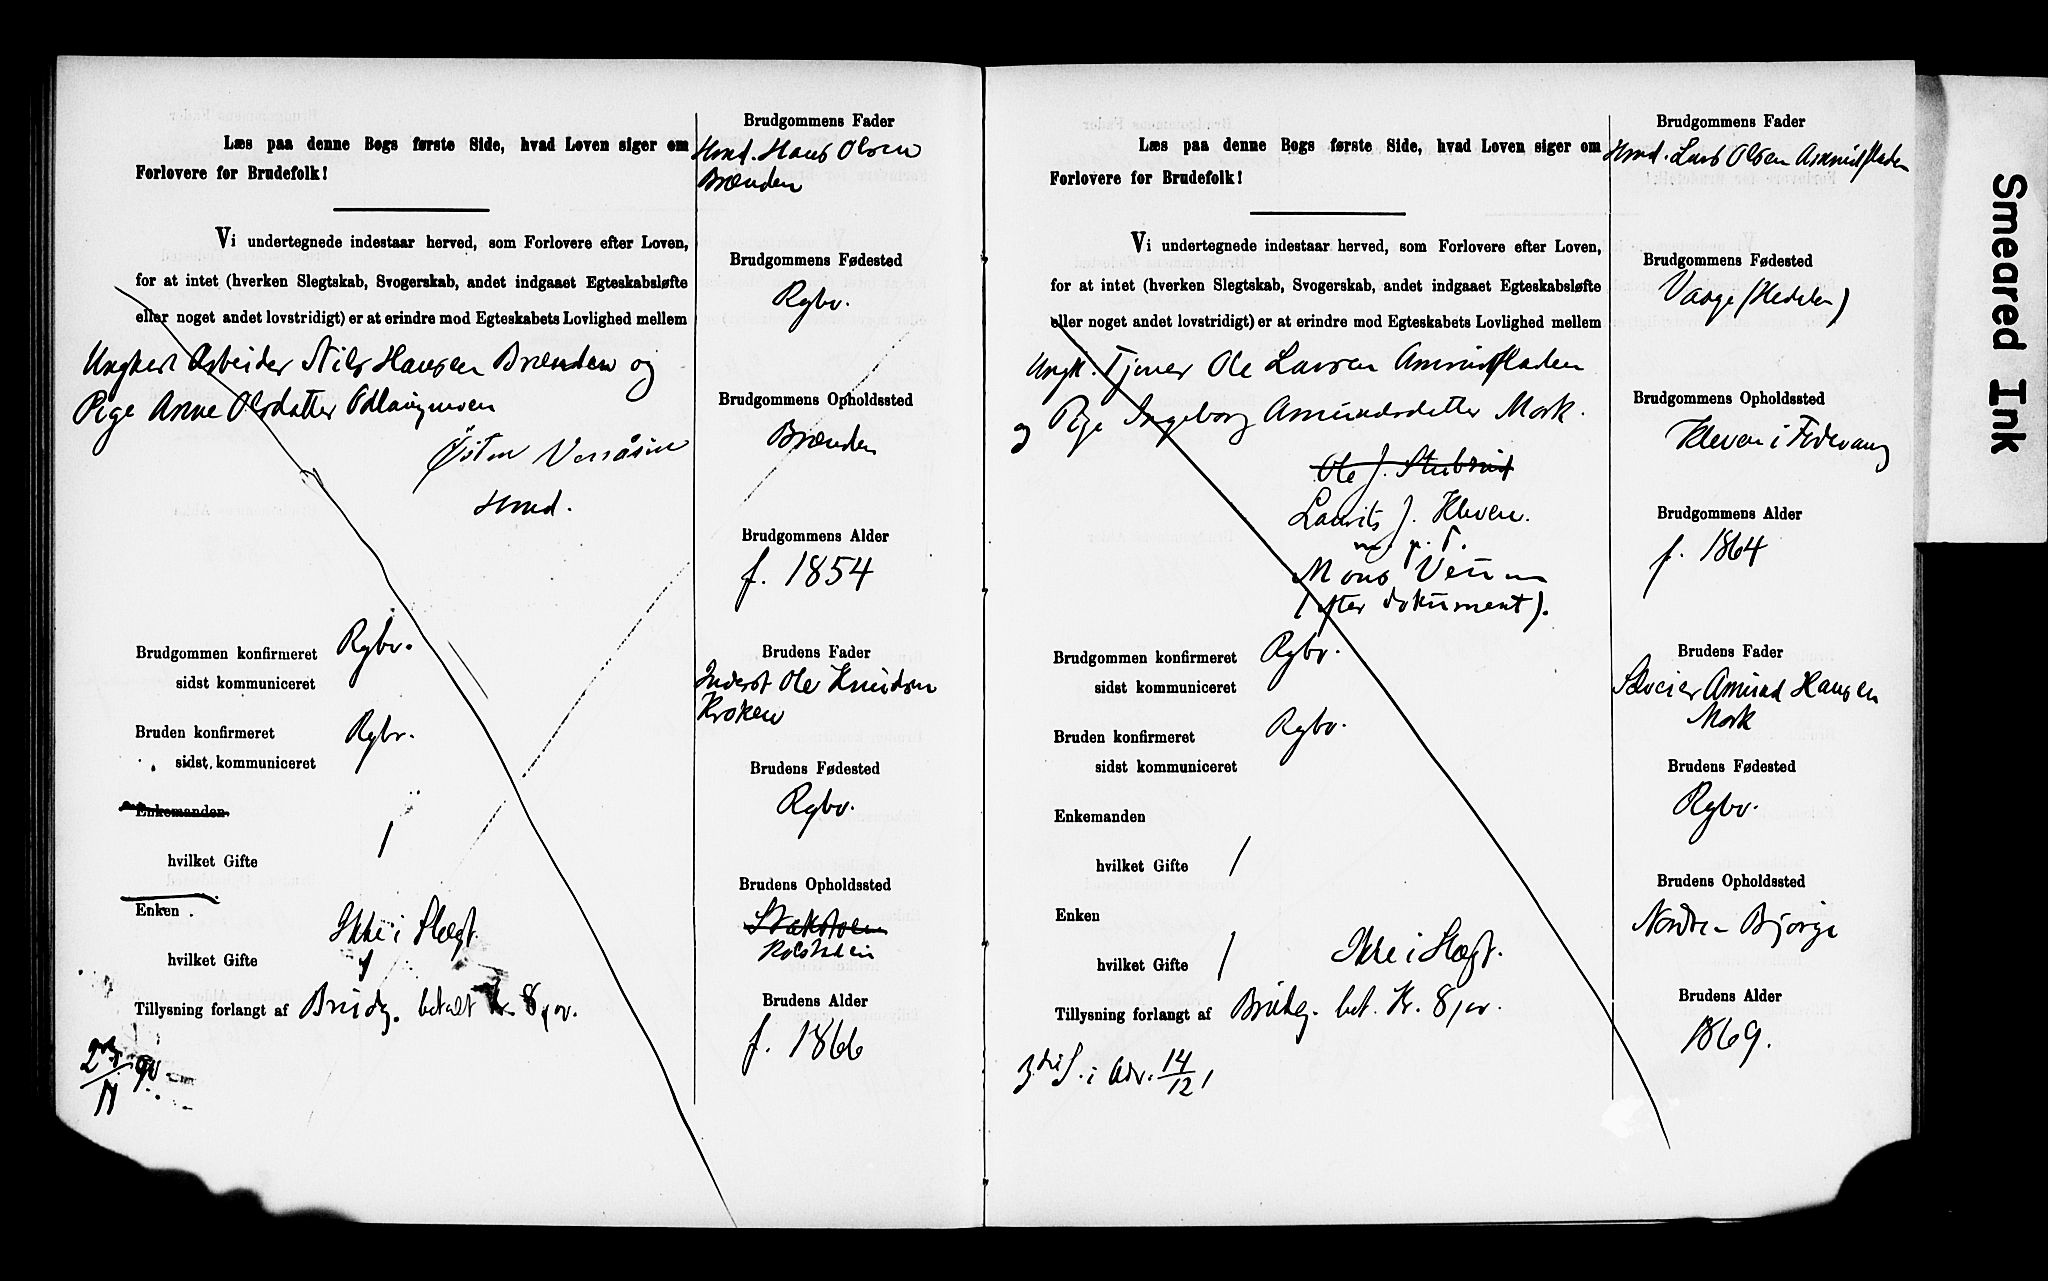 Læs paa denne Bogs første Side, hvad Loven siger om
Forlovere for Brudefolk!
Vi undertegnede indestaar herved, som Forlovere efter Loven,
for at intet (hverken Slegtskab, Svogerskab, andet indgaaet Egteskabsløfte
eller noget andet lovstridigt) er at erindre mod Egteskabets Lovlighed mellem
Ungkerl Arbeider Nils Hansen Brænden og
Pige Anne Olsdatter
Østen
Hmd.
Brudgommen konfirmeret Rgbv.
sidst kommuniceret
Bruden konfirmeret Rgbv.
sidst kommuniceret
Enkemanden
hvilket Gifte /
Enken
Ikke i Slægt.
hvilket Gifte /
Tillysning forlangt af Brudg. betalt Kr 8,00.
23/11 90.
Brudgommens Fader
Hmd. Hans Olsen
Brænden
Brudgommens Fødested
Rgbv.
Brudgommens Opholdssted
Brænden
Brudgommens Alder
f. 1854
Brudens Fader
Inderst Ole Knudsen
Kroken
Brudens Fødested
Rgbv.
Brudens Opholdssted
Brudens Alder
f. 1866
Læs paa denne Bogs første Side, hvad Loven siger om
Forlovere for Brudefolk!
Vi undertegnede indestaar herved, som Forlovere efter Loven,
for at intet (hverken Slegtskab, Svogerskab, andet indgaaet Egteskabsløfte
eller noget andet lovstridigt) er at erindre mod Egteskabets Lovlighed mellem
Ungk. Tjener Ole Larsen Amrudfladen
og Pige Ingeborg Amundsdatter Mork.
Ole J. Stubrud
Laurits J. Kleven.
m. p. P.
Mons
(efter dokument).
Brudgommen konfirmeret Rgbv.
sidst kommuniceret
Bruden konfirmeret Rgbv.
sidst kommuniceret
Enkemanden
hvilket Gifte /
Enken
Ikke i Slægt.
hvilket Gifte /
Tillysning forlangt af Brudg. bet. Kr. 8,00.
3die S. i Adv. 14/12
Brudgommens Fader
Hmd. Lars Olsen Amrudfladen
Brudgommens Fødested
Vaage (Hedalen)
Brudgommens Opholdssted
Kleven i
Brudgommens Alder
f. 1864
Brudens Fader
Selveier Amund Hansen
Mork
Brudens Fødested
Rgbv.
Brudens Opholdssted
Nordre Bjørge
Brudens Alder
1869.
Smeared Ink